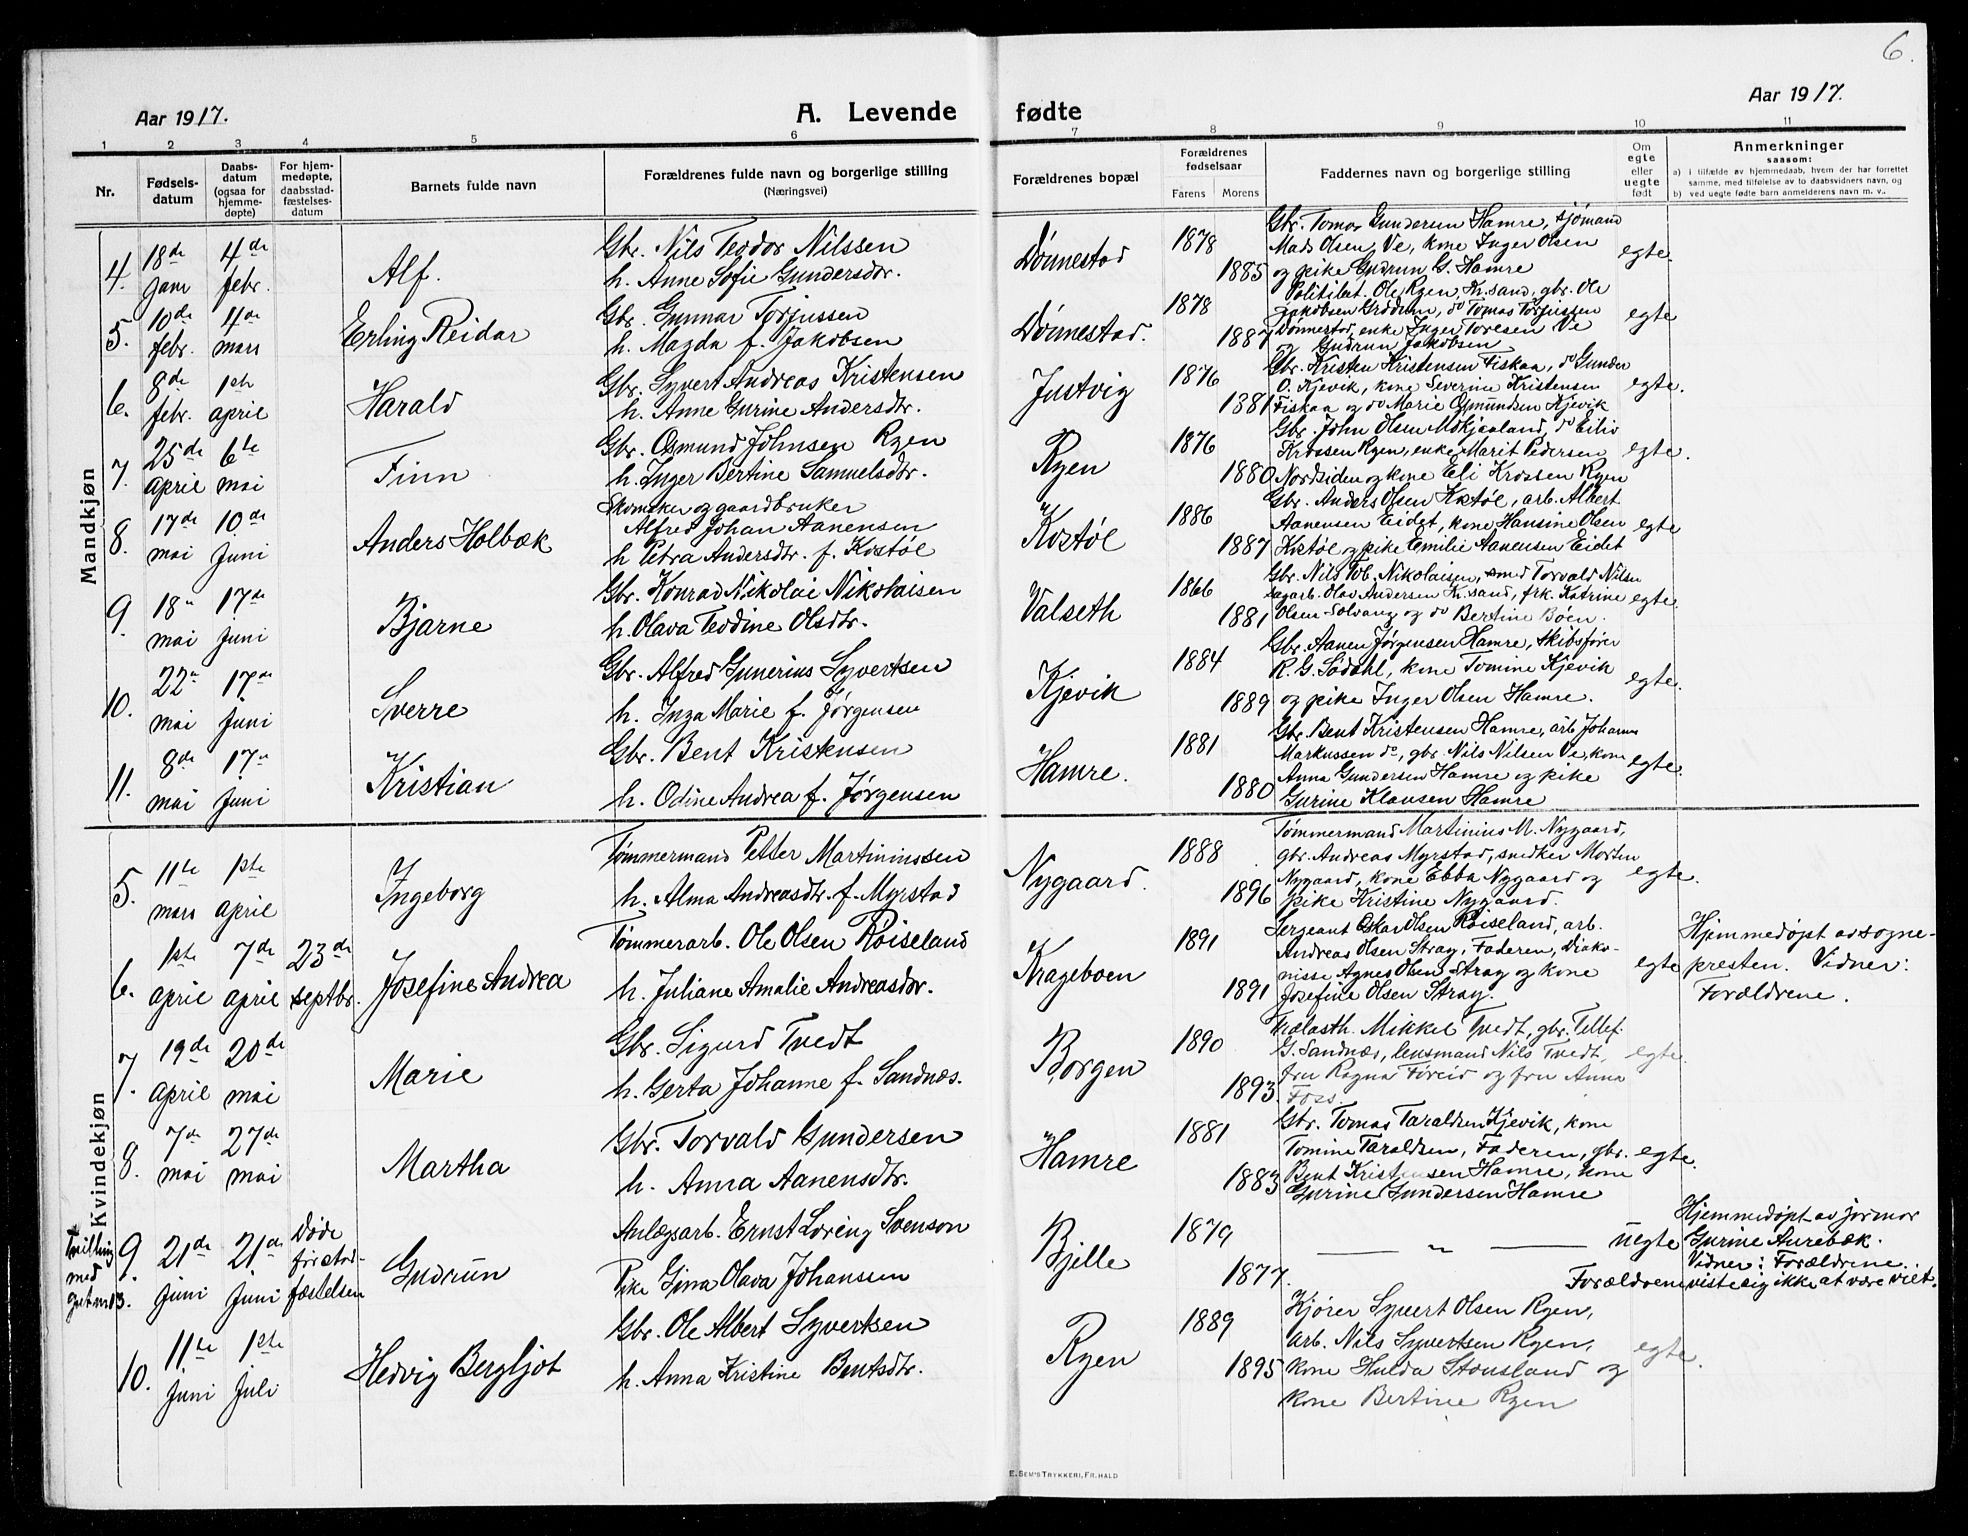 6.
Aar 1917.
A. Levende fødte
Aar 1917.
1 2 3 4 5 6 7 8 9 10 11
Nr.
Fødsels-
datum
Daabs-
datum
(ogsaa for
hjemme-
døpte)
For hjem-
medøpte,
daabsstad-
fæstelses-
datum
Barnets fulde navn
Forældrenes fulde navn og borgerlige stilling
(Næringsvei)
Forældrenes bopæl
Forældrenes
fødselsaar
Farens Morens
Faddernes navn og borgerlige stilling
Om
egte
eller
uegte
født
Anmerkninger
saasom:
a) i tilfælde av hjemmedaab, hvem der har forrettet
samme, med tilføielse av to daabsvidners navn, og
b) ved uegte fødte barn anmelderens navn m. v..
Mandkjøn
4. 18de jani 4de febr.
Alf.
Gbr. Nils Teodor Nilssen
h. Anne Sofie Gundersdtr.
Dønnestad
1878
1885
Gbr. Tomas Gundersen Hamre, sjømand
Mads Olsen, Ve, kone Inger Olsen
og pike Gudrun G. Hamre
egte.
5. 10de febr. 4de mars
Erling Reidar
Gbr. Gunnar Torjussen
h. Magda f. Jakobsen
Dønnestad.
1878
1887
Politibet. Ole Ryen, Kr.sand, gbr. Ole
Jakobsen Grødum, do Tomas Torjussen
Dønnestad, enke Inger Toresen Ve
og Gudrun Jakobsen
egte
6. 8de febr. 1ste april
Harald
Gbr. Syvert Andreas Kristensen
h. Anne Gurine Andersdtr.
Justvig
1876
1881
Gbr. Kristen Kristensen Fiskaa, do Gunder
O. Kjevik, kone Severine Kristensen
Fiskaa og do Marie Osmundsen Kjevik
egte.
7. 25de april 6te mai
Finn
Gbr. Osmund Johnsen Ryen
h. Inger Bertine Samuelsdtr.
Ryen
1876
1880
Gbr. John Olsen Mokjaaland, do Eiliv
Krossen Ryen, enke Marit Pedersen
Nordsiden og kone Eli Krossen Ryen
egte.
8. 17de mai 10de juni
Anders Holbæk
Skomaker og gaardbruker
Alfred Johan Aanensen
h Petra Andersdtr. f. Kostøl
Kostøl
1886
1887
Gbr. Anders Olsen Kostøl, arb. Albert
Aanensen Eidet, kone Hansine Olsen
Kostøl og pike Emilie Aanensen Eidet
egte
9. 18" mai 17de juni
Bjarne
Gbr. Konrad Nikolai Nikolaisen
h. Olava Teodine Olsdtr.
Valseth
1866
1881
Gbr. Nils Tob. Nikolaisen, smed Torvald Nilsen
sagarb. Olav Andersen Kr.sand, frk. Katrine
Olsen Solvang og do Bertine Bøen.
egte.
10. 22" mai 17de juni
Sverre
Gbr. Alfred Gunerius Syvertsen
h. Inga Marie f. Jørgensen
Kjevik
1884
1889
Gbr. Aanen Jørgensen Hamre, skibsfører
R. G. Sødahl, kone Tomine Kjevik
og pike Inger Olsen Hamre.
egte.
11. 8de mai 17" juni
Kristian
Gbr. Bent Kristensen
h. Odine Andrea f. Jørgensen
Hamre.
1881
1880
Gbr. Bent Kristensen Hamre, arb. Johannes
Markussen do, gbr. Nils Nilsen Ve, kone
Anna Gundersen Hamre og pike
Gurine Klausen Hamre
egte.
Kvindekjøn
5. 11te mars 1ste april
Ingeborg
Tømmermand Petter Martinussen
h. Alma Andreasdtr. f. Myrstad
Nygaard.
1888
1896
Tømmermand Martinius M. Nygaard,
gbr. Andreas Myrstad, snedker Morten
Nygaard, kone Ebba Nygaard og
pike Kristine Nygaard.
egte.
6. 1ste april 7de april 23de septbr.
Josefine Andrea
Tømmerarb. Ole Olsen Røiseland
h. Juliane Amalie Andreasdtr.
Krageboen
1891
1891
Sergeant Oskar Olsen Røiseland, arb.
Andreas Olsen Stray, Faderen, Diako-
nisse Agnes Olsen Stray og kone
Josefine Olsen Stray.
egte
Hjemmedøpt av sogne-
presten. Vidner:
Forældrene.
7. 19de april 20de mai
Marie
Gbr. Sigurd Tvedt
h. Gerta Johanne f. Sandnæs.
Borgen
1890
1893.
Mikkel Tvedt, gbr. Tellef.
G. Sandnæs, lensmand Nils Tvedt,
fru Ragna Føreid og fru Anna
Foss.
egte.
8. 7de mai 27de mai
Martha
Gbr. Torvald Gundersen
h. Anna Aanensdtr.
Hamre
1881
1883
Gbr. Tomas Taraldsen Kjevik, kone
Tomine Taraldsen, Faderen, gbr.
Bent Kristensen Hamre, kone
Gurine Gundersen Hamre
egte.
Tvilling
med
gut nr 13.
9. 21de juni 21de juni
Døde
før stad-
fæstelsen
Gudrun
Anlægsarb. Ernst Loreng Svenson
Pike Gina Olava Johanssen
Bjelle
1879
1877.
— " —
uegte
Hjemmedøpt av jormor
Gurine Aurebæk.
Vidner: Forældrene.
Forældrene viste sig ikke at være viet.
10. 11te juni 1ste juli
Hedvig Bergljot
Gbr. Ole Albert Syvertsen
h. Anna Kristine Bentsdtr.
Ryen
1889
1895
Kjører Syvert Olsen Ryen,
arb. Nils Syvertsen Ryen,
kone Hulda Stousland og
kone Bertine Ryen
egte.
E. SEM'S TRYKKERI, FR.HALD